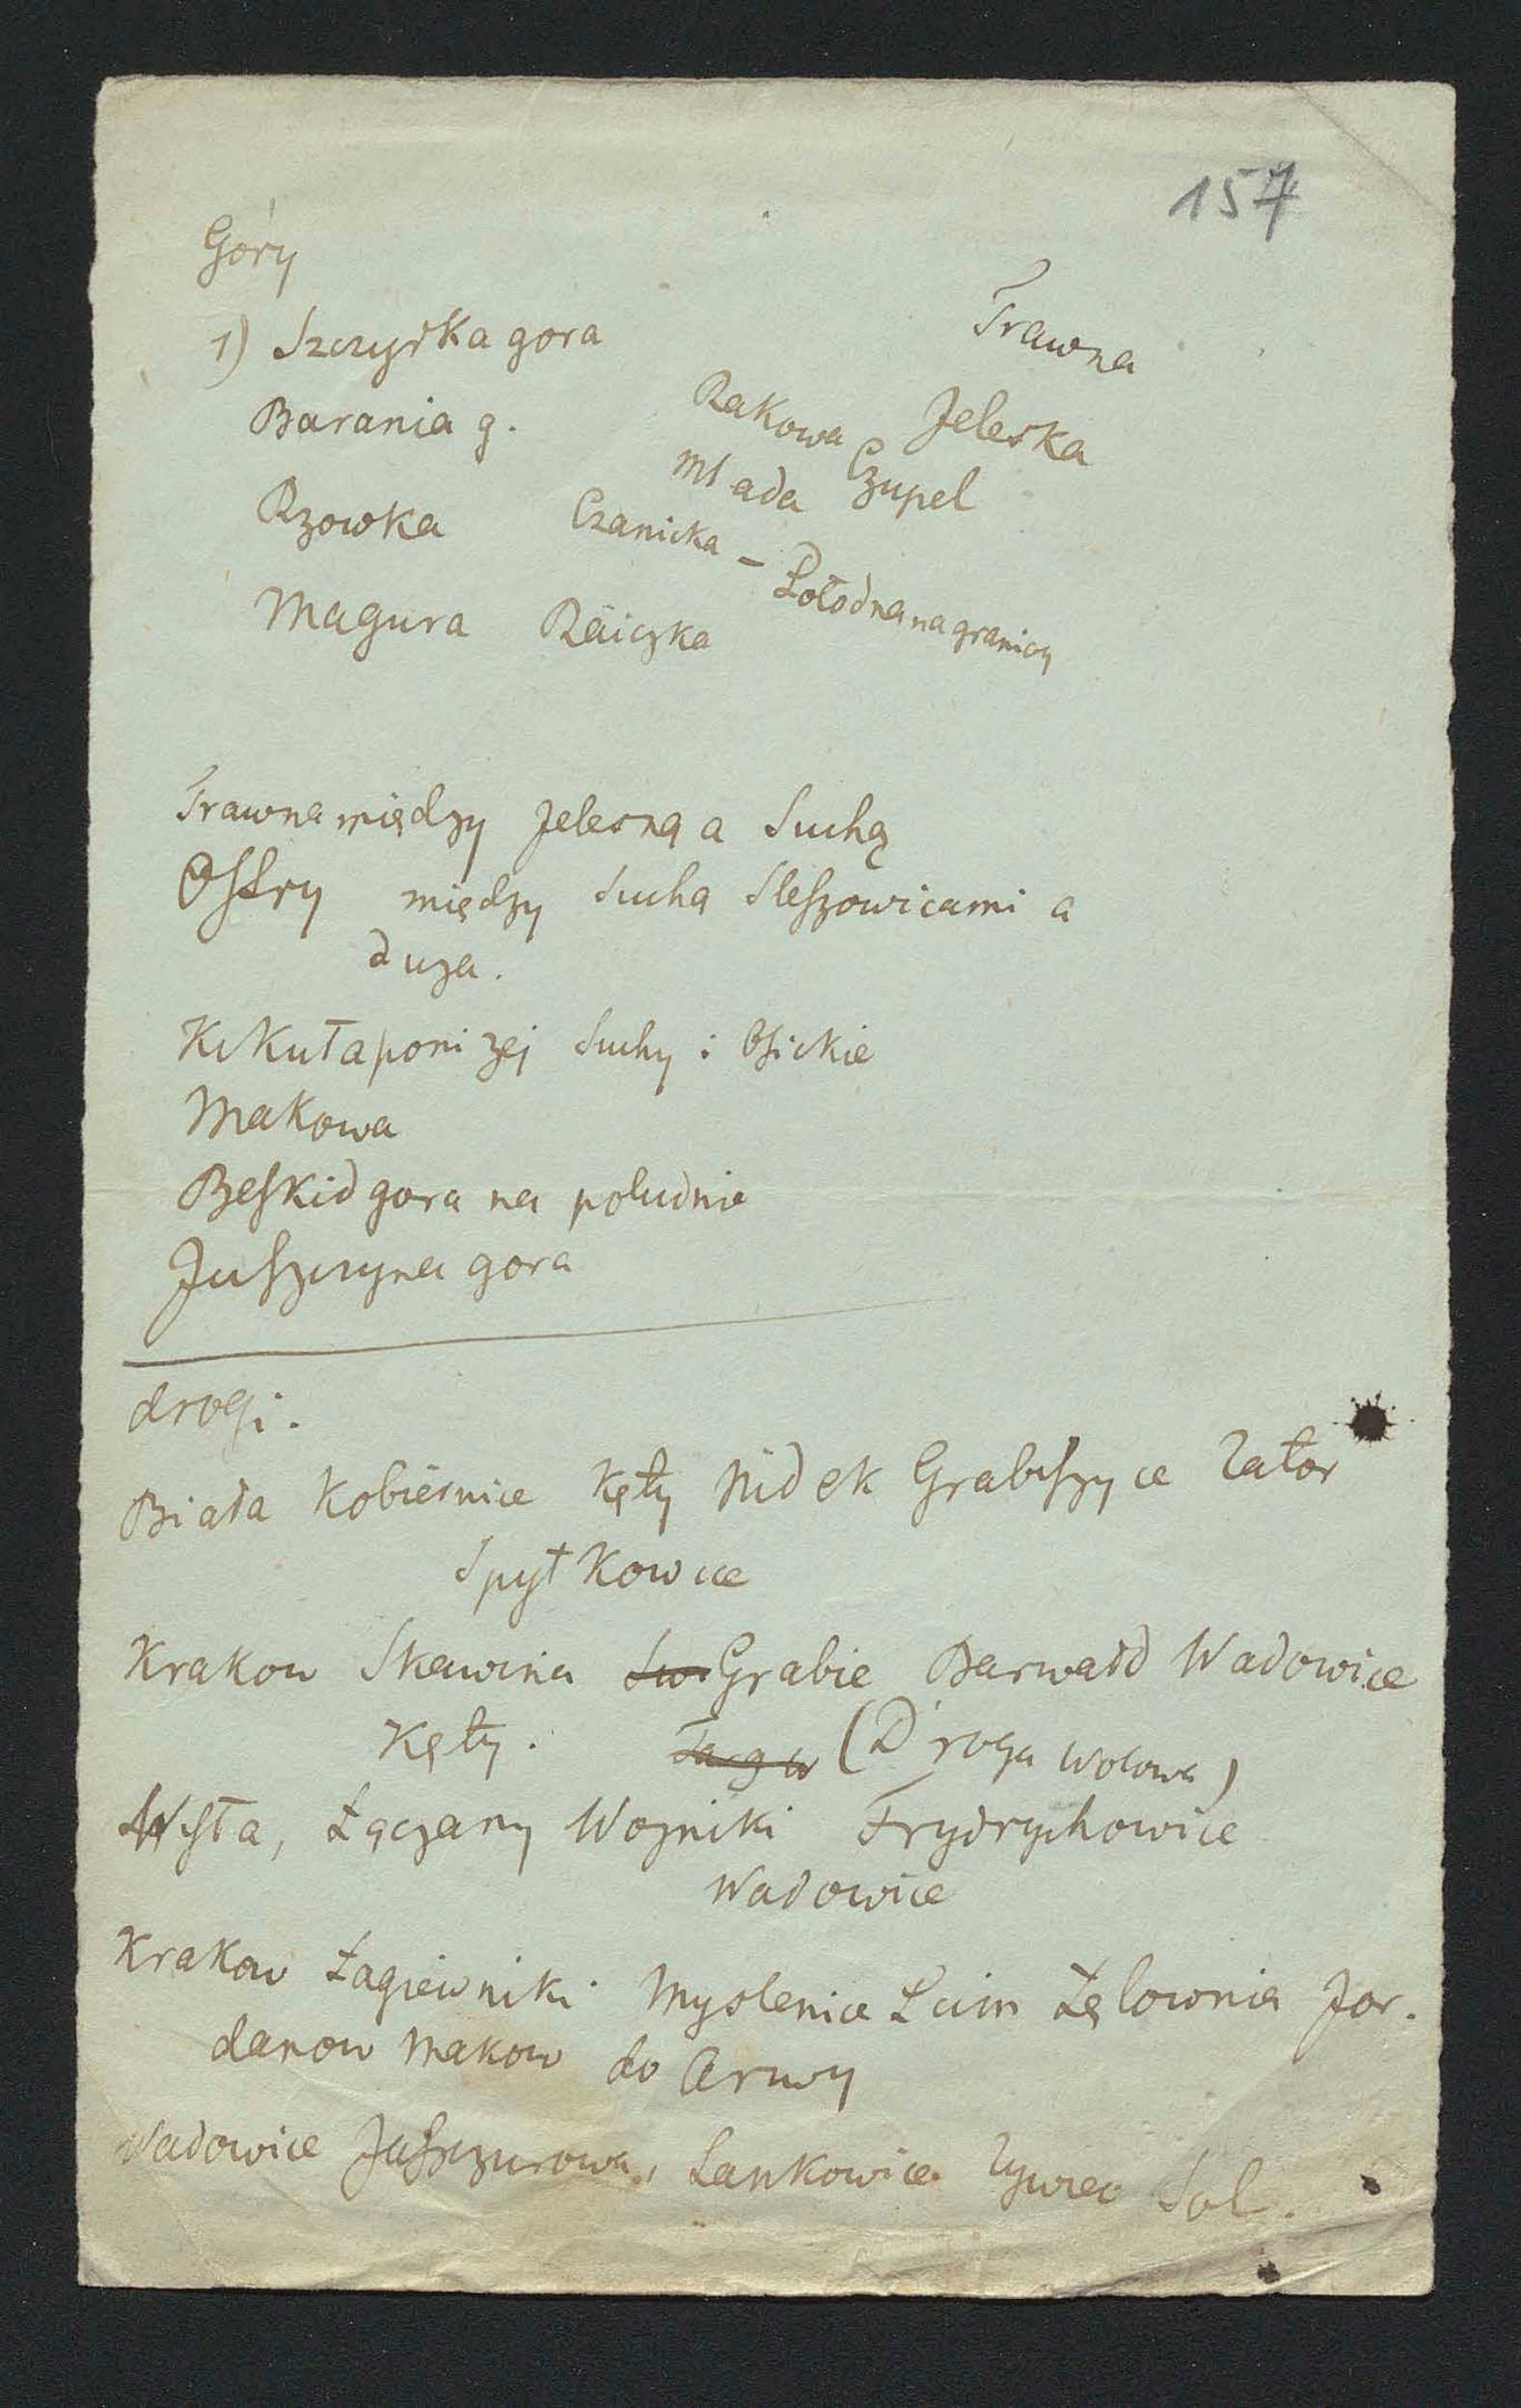 157
Góry
1) Szczyrka gora
Trawna
Barania g.
Rakowa Jeleska
Mlada Czupel
Rzowka Czanicka – Połodna na granicy
Magura Raiczka
Trawna między Jelesną a Suchą
Ostry między Sucha Sleszowicami a
duza.
Kikuła ponizej Suchy i
Makowa
Beskid gora na południe
Juszczyna gora
drogi.
Biała Kobiernice Kęty Nidek Grabiszyce Zator
Spytkowice
Krakow Skawina Sw. Grabie Barwałd Wadowice
Kęty. Targw (Droga Wolowa)
Wisła, Łączany Wozniki Frydrychowice
Wadowice
Krakow Łagiewniki Myslenice Lcim Łętownia Jor.
danow Makow do Arwy
Wadowice Jaszczurowa, Lankowice Zywiec Sol.